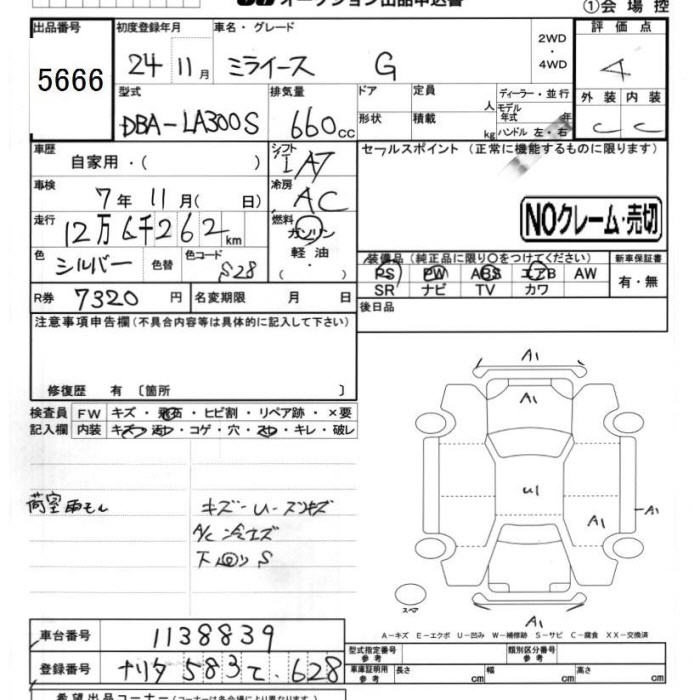 オークション出品申込書
①会場控
出品番号 初度登録年月 車名・グレード 評価点
5666 24 11月 ミライース G 2WD・4WD 4
型式 排気量 ドア 定員 人 ディーラー・並行 外装 内装
DBA-LA300S 660cc 形状 積載 kg モデル年式 年 ハンドル 左・右 C C
車歴 シフト セールスポイント(正常に機能するものに限ります)
自家用・( ) IAT
車検 冷房
7年11月( 日) AC
NOクレーム・売切
走行 燃料
12万6千262km ガソリン
色 色替 色コード 軽油
シルバー S28 ・( )
装備品(純正品に限り○をつけてください) 新車保証書
PS PW ABS エアB AW 有・無
SR ナビ TV カワ
R券 7320円 名変期限 月 日 後日品
注意事項申告欄(不具合内容等は具体的に記入して下さい)
修復歴 有〔箇所 〕
検査員 FW キズ・飛石・ヒビ割・リペア跡・×要
記入欄 内装 キズ・汚れ・コゲ・穴・スレ・キレ・破レ
荷室雨モレ キズ-U-スリキズ
A/C冷エズ
下回りS
A1
A1
U1
A1
A1
A1
スペア
A-キズ E-エクボ U-凹み W-補修跡 S-サビ C-腐食 XX-交換済
車台番号 1138839
型式指定番号 参考 類別区分番号 参考
登録番号 ナリタ 583 て・628
車庫証明用 参考 長さ cm 幅 cm 高さ cm
希望出品コーナー(コーナーは各会場により異なります)